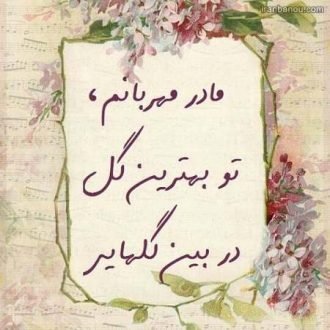 iranbanou.com
مادر مهربانم،
تو بهترین گل
در بین گلهایی